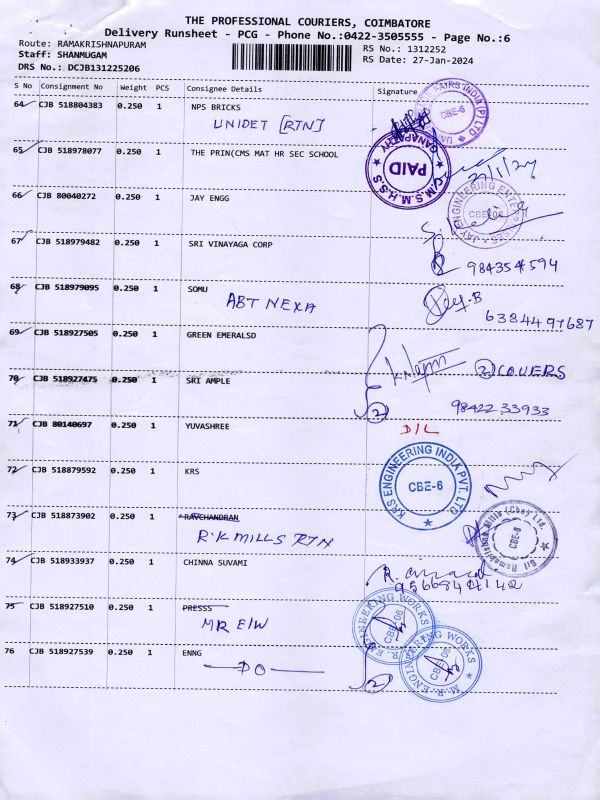 THE PROFESSIONAL COURIERS, COIMBATORE
Delivery Runsheet - PCG - Phone No.:0422-3505555 - Page No.:6
Route: RAMAKRISHNAPURAM
Staff: SHANMUGAM
DRS No.: DCJB131225206
RS No.: 1312252
RS Date: 27-Jan-2024
S No Consignment No Weight PCS Consignee Details Signature
64 CJB 518804383 0.250 1 NPS BRICKS
UNIDET [RTN]
CBE-6
65 CJB 518978077 0.250 1 THE PRIN(CMS MAT HR SEC SCHOOL
C.M.S.M.H.S.S GANAPATHY
PAID
27/1/24
66 CJB 80040272 0.250 1 JAY ENGG
JAY ENGINEERING ENTERPRISES
CBE-06
67 CJB 518979482 0.250 1 SRI VINAYAGA CORP
984354594
68 CJB 518979095 0.250 1 SOMU
ABT NEXA
6384497687
69 CJB 518927505 0.250 1 GREEN EMERALSD
2 COVERS
70 CJB 518927475 0.250 1 SRI AMPLE
2
98422 33933
71 CJB 80140697 0.250 1 YUVASHREE
D/L
72 CJB 518879592 0.250 1 KRS
KRS ENGINEERING INDIA PVT. LTD
CBE-6
73 CJB 518873902 0.250 1 RAVCHANDRAN
R.K MILLS RTN
Sri Ramakrishna Mills (Cbe) Ltd.
CBE-6
74 CJB 518933937 0.250 1 CHINNA SUVAMI
75 CJB 518927510 0.250 1 PRESSS
MR E/W
M.R. ENGINEERING WORKS
CBE-06
76 CJB 518927539 0.250 1 ENNG
DO
2
M.R. ENGINEERING WORKS
CBE-06